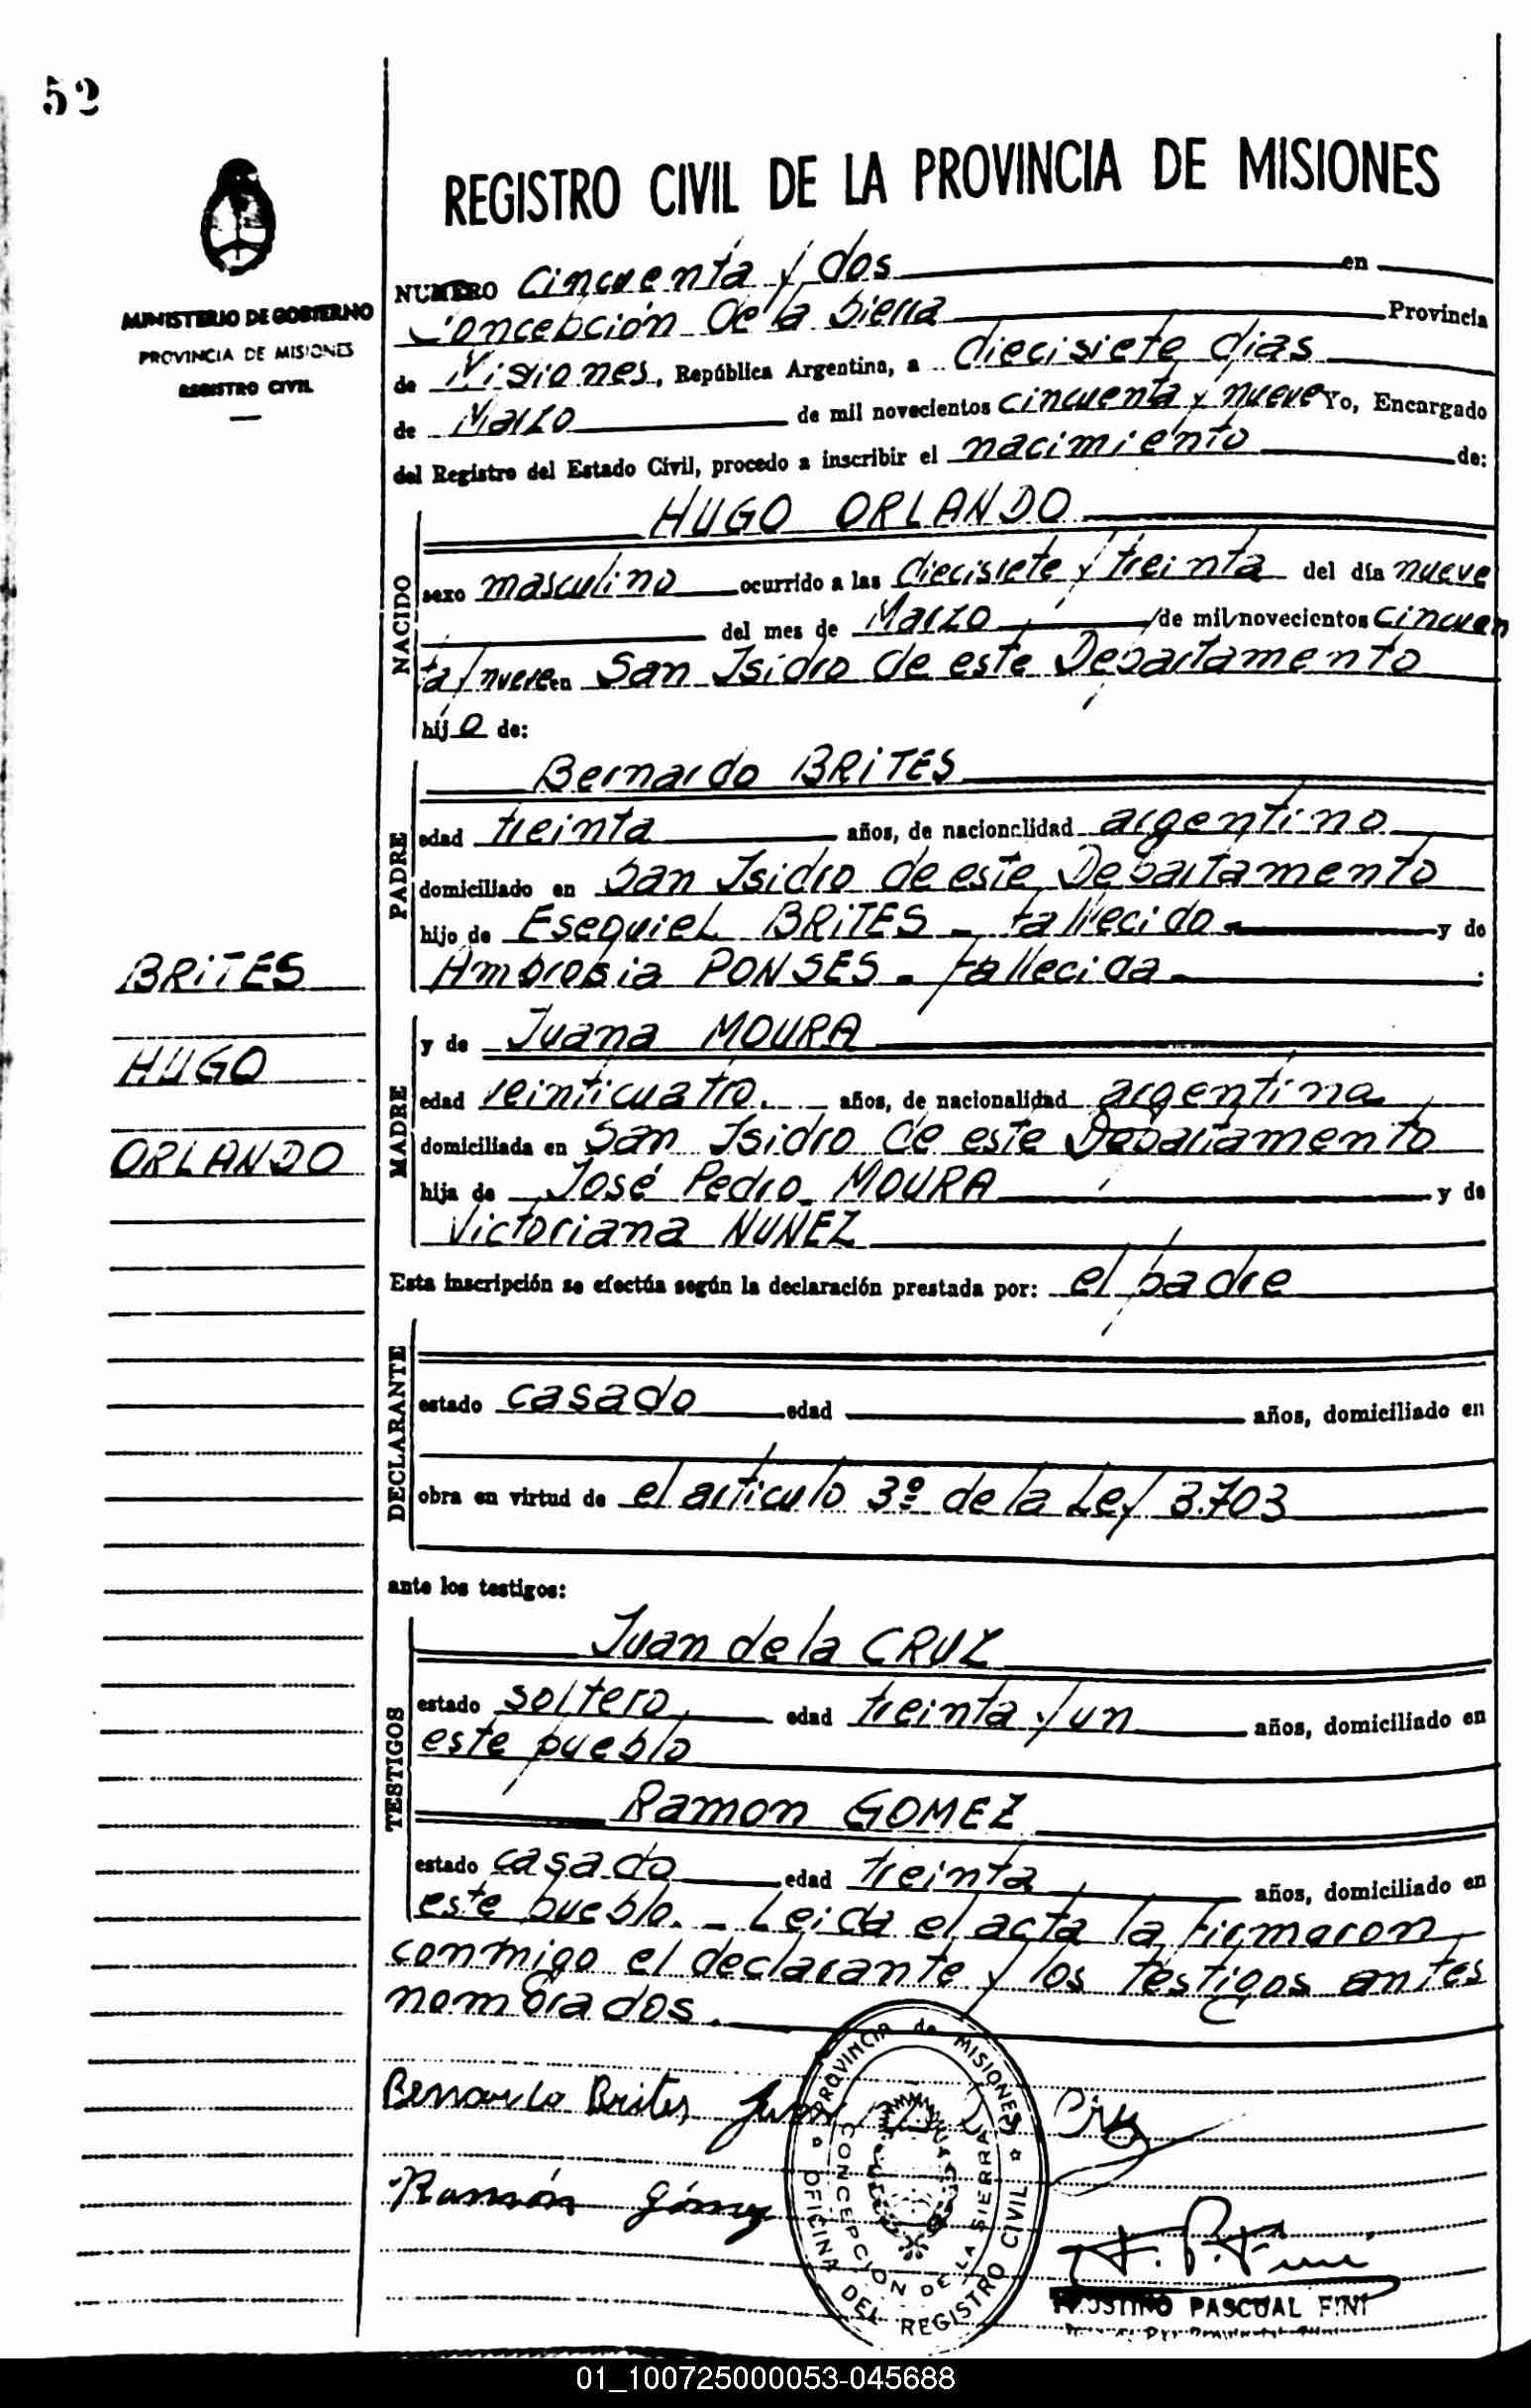 52
MINISTERIO DE GOBIERNO
PROVINCIA DE MISIONES
REGISTRO CIVIL
REGISTRO CIVIL DE LA PROVINCIA DE MISIONES
NUMERO Cincuenta y dos en
Concepción de la Sierra Provincia
de Misiones, República Argentina, a diecisiete dias
de Marzo de mil novecientos cincuenta y nueve Yo, Encargado
del Registro del Estado Civil, procedo a inscribir el nacimiento de:
HUGO ORLANDO
NACIDO
sexo masculino ocurrido a las diecisiete y treinta del día nueve
del mes de Marzo de mil novecientos cincuen
ta y nueve en San Isidro de este Departamento
hijo de:
Bernardo BRITES
PADRE
edad treinta años, de nacionalidad argentino
domiciliado en San Isidro de este Departamento
hijo de Esequiel BRITES - fallecido - y de
Ambrosia PONSES - fallecida -
BRITES
HUGO
ORLANDO
MADRE
y de Juana MOURA
edad veinticuatro. años, de nacionalidad argentina
domiciliada en San Isidro de este Departamento
hija de José Pedro MOURA y de
Victoriana NUÑEZ
Esta inscripción se efectúa según la declaración prestada por: el padre
DECLARANTE
estado casado edad años, domiciliado en
obra en virtud de el artículo 3º de la Ley 3.703
ante los testigos:
TESTIGOS
Juan de la CRUZ
estado soltero edad treinta y un años, domiciliado en
este pueblo
Ramon GOMEZ
estado casado edad treinta años, domiciliado en
este pueblo. - Leida el acta la firmaron
conmigo el declarante y los testigos antes
nombrados.
Bernardo Brites Juan Cruz
Ramón Gómez
PROVINCIA de MISIONES
OFICINA DEL REGISTRO CIVIL
CONCEPCION DE LA SIERRA
PASCUAL FINI
01_100725000053-045688